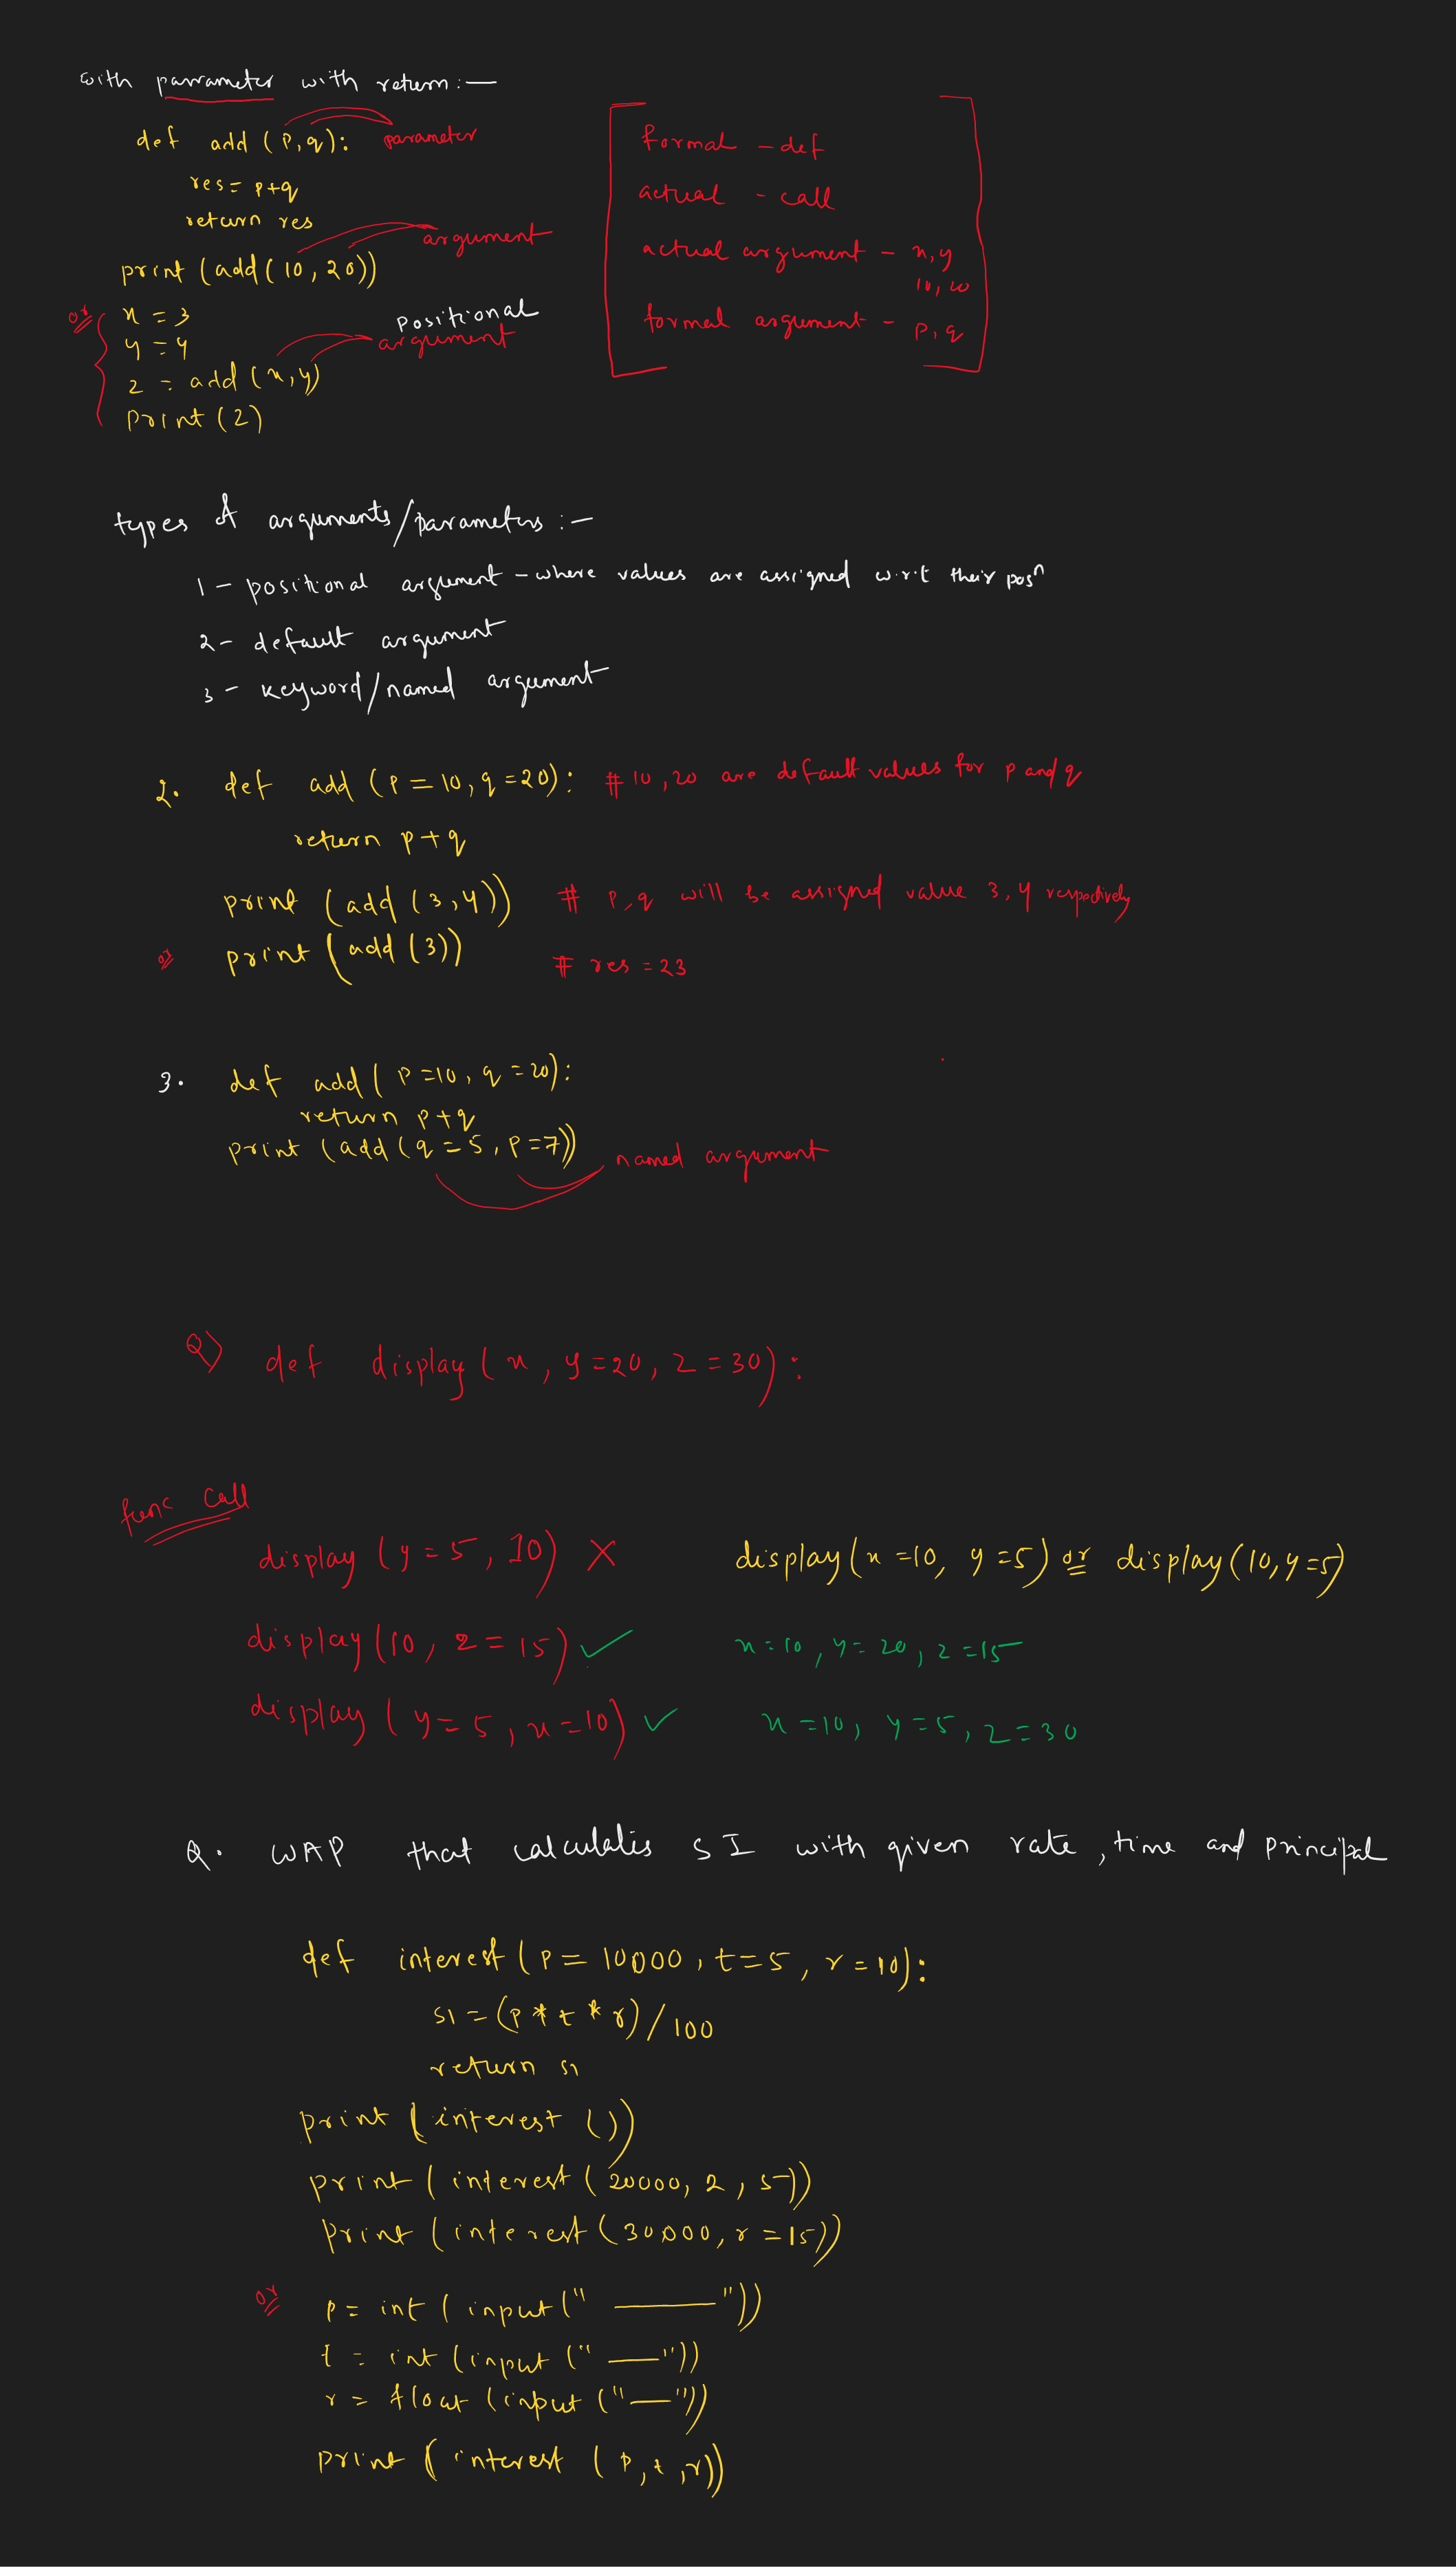 with parameter with return :-
def add (p,q): parameter
res = p+q
return res
argument
print (add(10,20))
or
x = 3
y = 4
positional
argument
z = add (x,y)
print (z)
formal - def
actual - call
actual argument - x,y
10,20
formal argument - p,q
types of arguments/parameters :-
1 - positional argument - where values are assigned w.r.t their posn
2 - default argument
3 - keyword/named argument
2. def add (p = 10, q = 20): # 10,20 are default values for p and q
return p+q
print (add (3,4)) # p,q will be assigned value 3,4 respectively
or print (add (3)) # res = 23
3. def add (p=10, q=20):
return p+q
print (add (q = 5, p=7))
named argument
Q) def display (x, y=20, z=30):
func call
display (y = 5, 10) X display (x =10, y =5) or display (10, y=5)
display (10, z = 15) ✓ x=10, y= 20, z =15
display (y= 5, x =10) ✓ x =10, y =5, z= 30
Q. WAP that calculates SI with given rate, time and principal
def interest (p = 10000, t=5, r =10):
si = (p * t * r) / 100
return si
print (interest ())
print (interest (20000, 2, 5))
print (interest (30000, r =15))
or p = int (input (" ——— "))
t = int (input (" — "))
r = float (input (" — "))
print (interest (p, t, r))